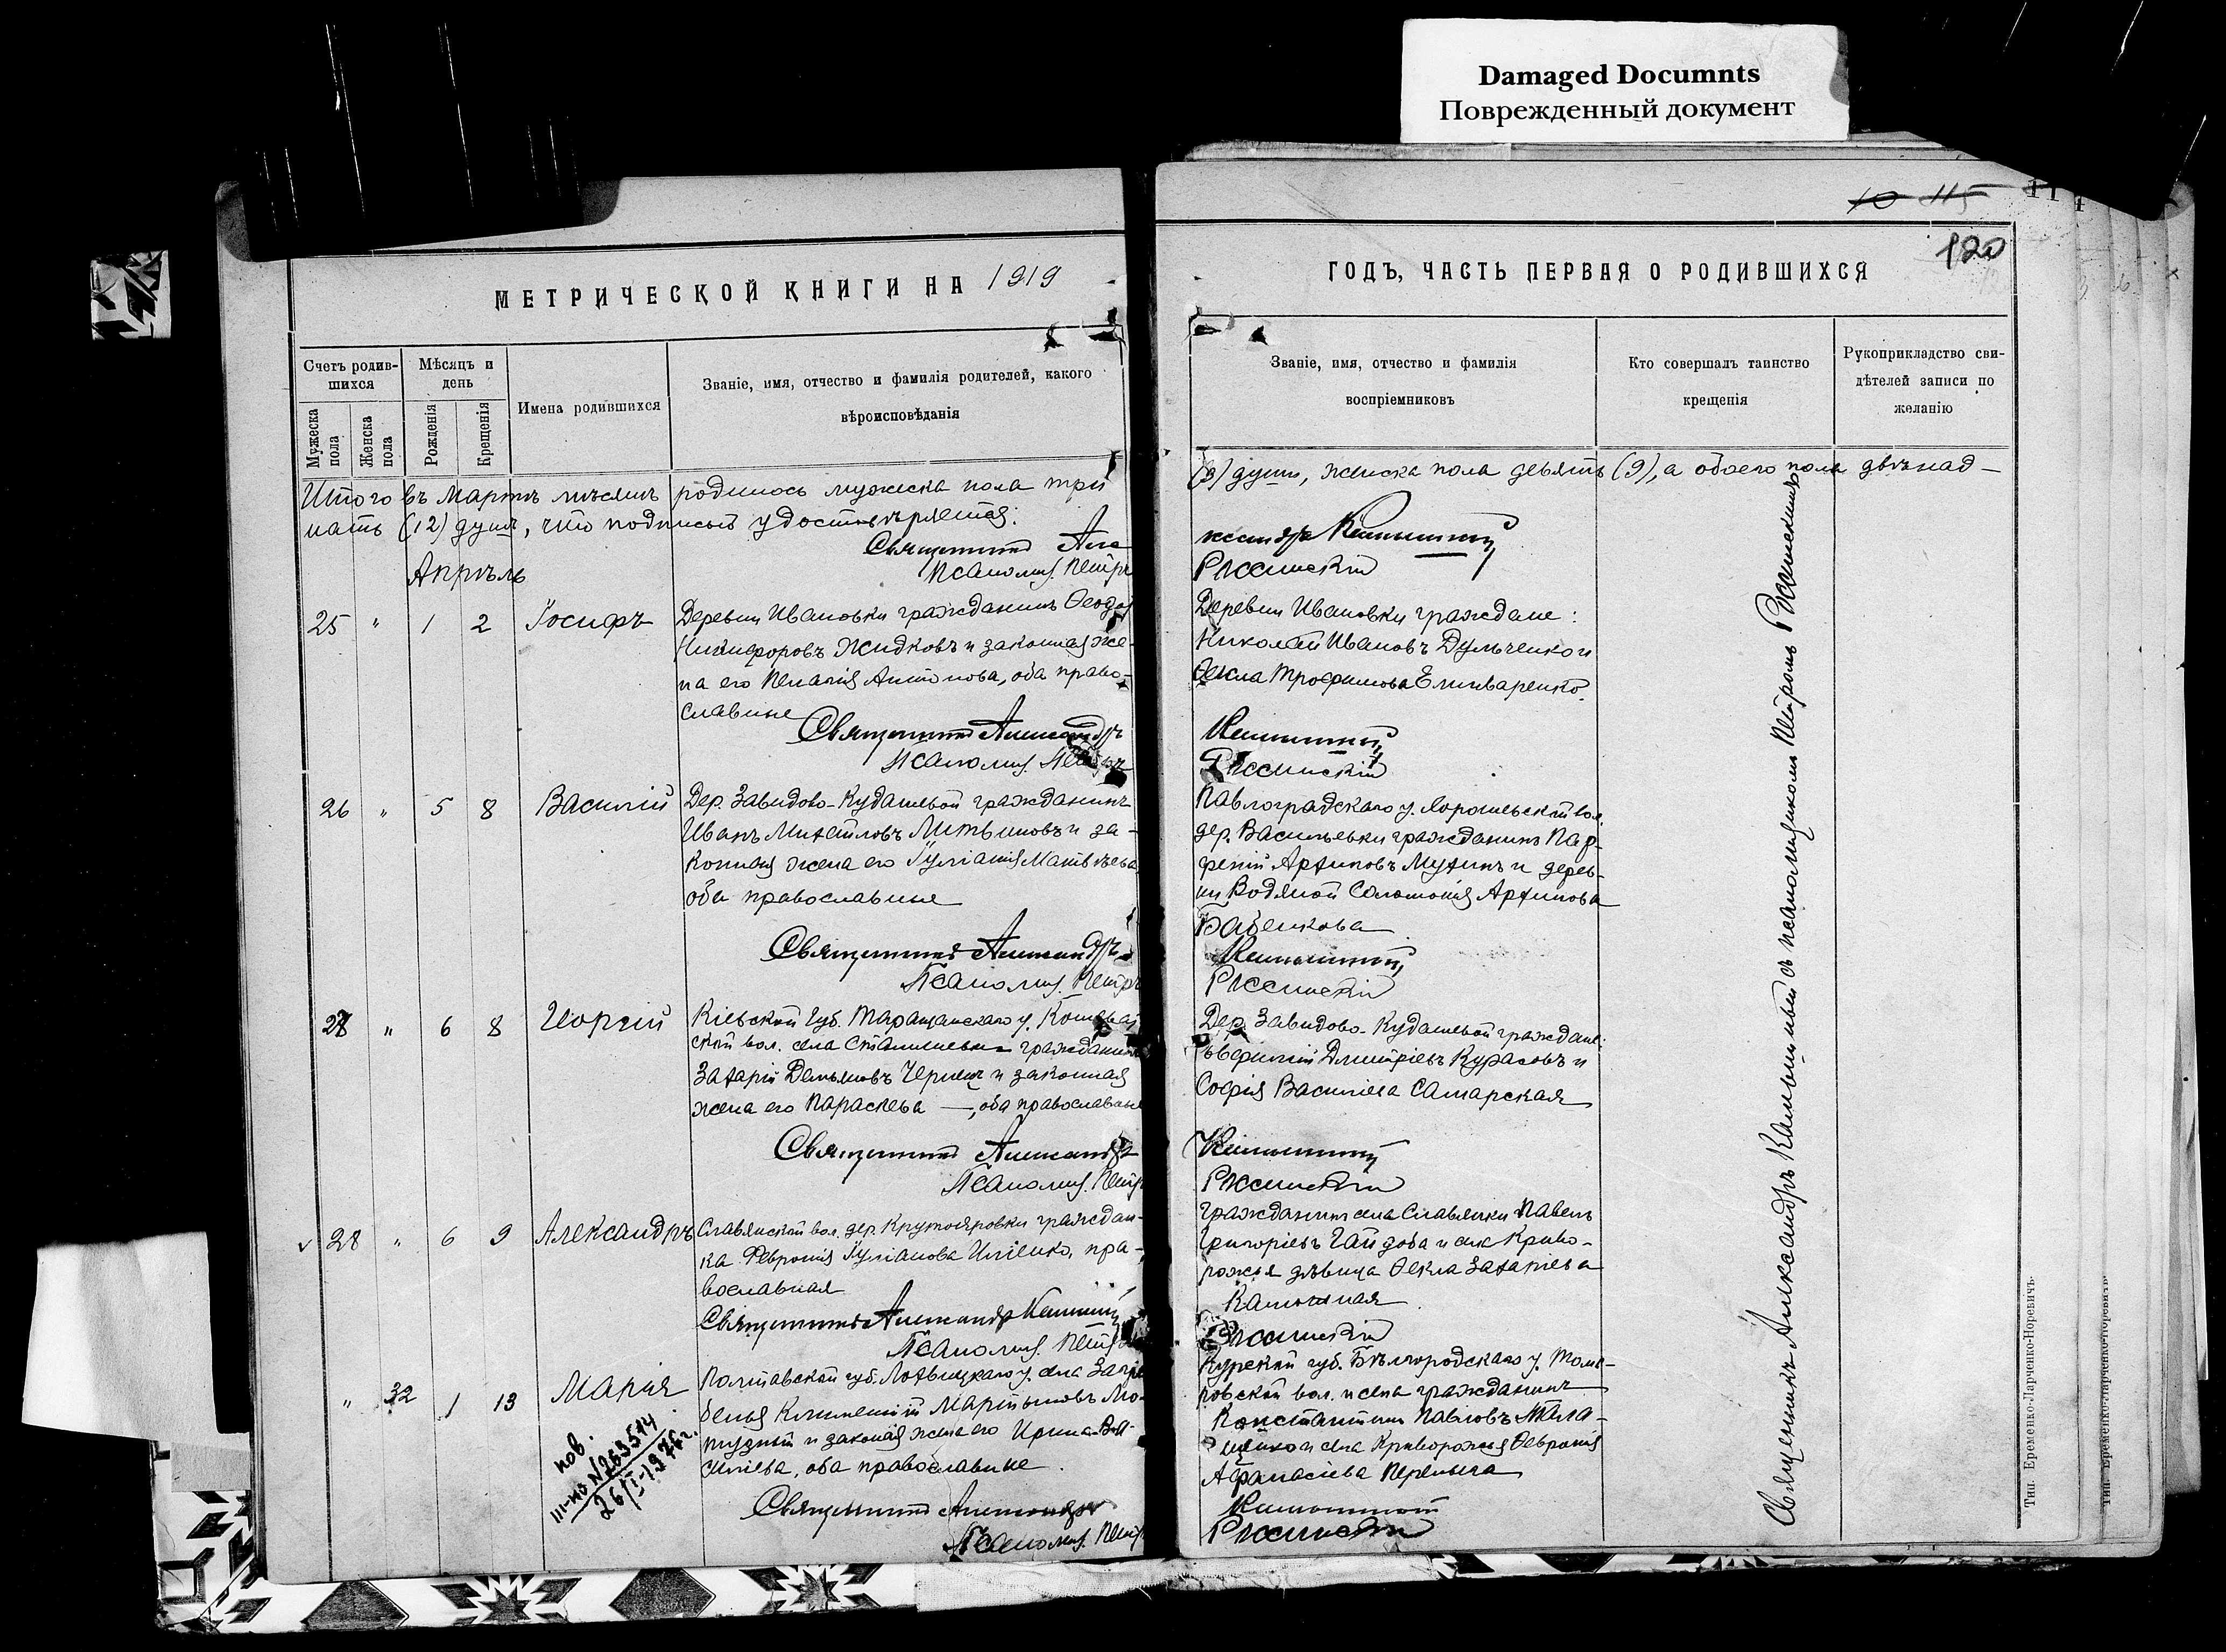 Damaged Documnts
Поврежденный документ
10 115
114
120
МЕТРИЧЕСКОЙ КНИГИ НА 1919
ГОДЪ, ЧАСТЬ ПЕРВАЯ О РОДИВШИХСЯ
Счетъ родив-
шихся
Мужеска
пола
Женска
пола
Мѣсяцъ и
день
Рожденія
Крещенія
Имена родившихся
Званіе, имя, отчество и фамилія родителей, какого
вѣроисповѣданія
Званіе, имя, отчество и фамилія
воспріемниковъ
Кто совершалъ таинство
крещенія
Рукоприкладство сви-
дѣтелей записи по
желанію
Итого въ Мартѣ мѣсяцѣ родилось мужеска пола три
(3) души, женска пола девять (9), а обоего пола двѣнад-
цать (12) душъ, что подписью удостовѣряется:
Священникъ Але
ксандръ
Псаломщ. Петръ
Россинскій
Апрѣль
25 " 1 2 Іосифъ
Деревни Ивановки гражданинъ Ѳеодо
Никифоровъ Жидковъ и законная же-
на его Пелагія Антонова, оба право-
славные
Священникъ Александръ
Псаломщ. Петръ
Деревни Ивановки граждане:
Николай Ивановъ Дульченко и
Ѳекла Трофимова
Россинскій
26 " 5 8 Василій
Дер. Завидово-Кудашевой гражданинъ
Иванъ Михайловъ Литвиновъ и за-
конная жена его Іуліанія Матвѣева,
оба православные
Священникъ Александръ
Псаломщ. Петръ
Павлоградскаго у. вол.
дер. Васильевки гражданинъ Пар-
феній Архиповъ Мухинъ и дерев-
ни Водяной Соломонія Архипова
Бабенкова
Россинскій
27 " 6 8 Георгій
Кіевской губ. Таращанскаго у.
ской вол. села гражданинъ
Захарій Демьяновъ и законная
жена его Параскева —, оба православные
Священникъ Александръ
Псаломщ. Петръ
Дер. Завидово-Кудашевой граждане:
Дмитріевъ Курасовъ и
Софія Васильева Самарская
Россинскій
v 28 " 6 9 Александръ
Славянской вол. дер. Крутояровки граждан-
ка Феронія Іуліанова Иліенко, пра-
вославная
Священникъ Александръ
Псаломщ. Петръ
Гражданинъ села Славянки Павелъ
Григорьевъ Гайдова и села Криво-
рожья дѣвица Ѳекла Захаріева
Россинскій
" 32 1 13 Марія
пов.
III-ИО №263514
26/I-1976г.
Полтавской губ. Лохвицкаго у. села
Климентій Мартыновъ
и законная жена его Ирина Ва-
сильева, оба православные.
Священникъ Александръ
Псаломщ. Петръ
Курской губ. Бѣлгородскаго у.
ровской вол. и села гражданинъ
Константинъ Павловъ
и села Криворожья Ѳевронія
Афанасіева
Россинскій
Священникъ Александръ съ псаломщикомъ Петромъ Россинскимъ
Тип. Еременко-Ларченко-Норевичъ.